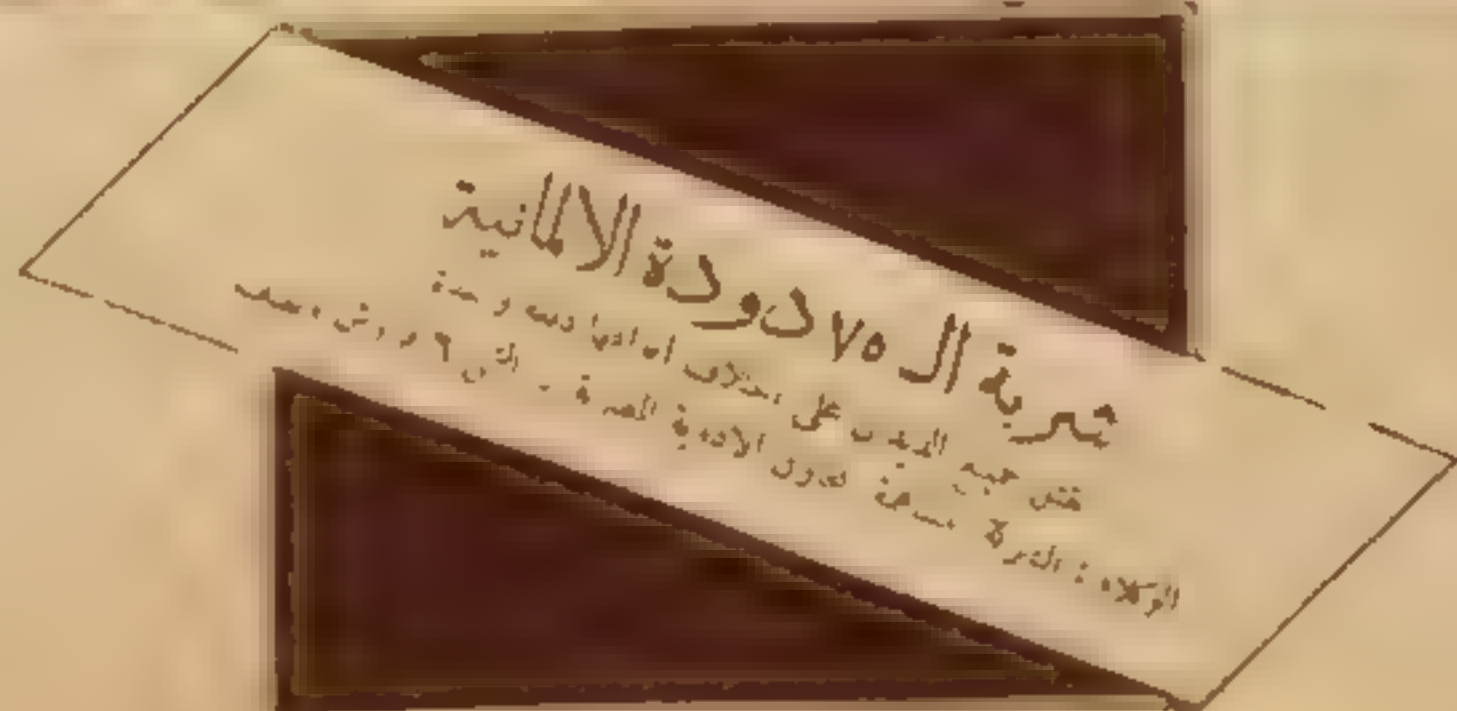 شربة ال ٧٥ دودة الالمانية
تقتل جميع الديدان على اختلاف انواعها دفعة واحدة
الوكلاء : الشركة المساهمة لمخازن الادوية المصرية - الثمن ٦ قروش ونصف